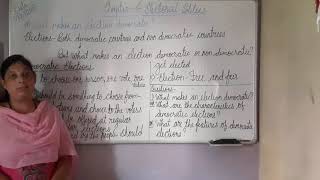 Chapter- Electoral Politics
makes an election democratic
Elections- Both democratic countries and non democratic countries
But what makes an election democratic or non democratic?
Democratic Elections
to choose one person, one vote, one value
should be something to choose from
and choice to the voters
be offered at regular
elections
by the people should
get elected
Election- Free and fair
Questions-
What makes an election democratic?
What are the characteristics of democratic elections?
What are the features of democratic elections?